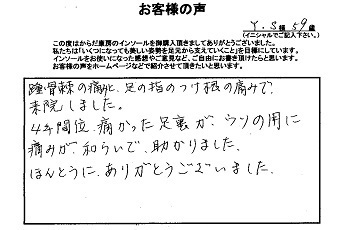 お客様の声
Y.S様 59歳
(イニシャルでご記入下さい。)
この度はからだ康房のインソールを御購入頂きましてありがとうございました。
私たちは「いくつになっても美しい姿勢を足元から支えていくこと」を目標にしています。
インソールをお使いになった感想やご意見など、ご自由にお書き下さい。
お客様の声をホームページなどで紹介させて頂きたいと思います。
踵骨棘の痛みと、足の指のつけ根の痛みで、
来院しました。
4年間位、痛かった足裏が、ウソの用に
痛みが、和らいで、助かりました。
ほんとうに、ありがとうございました。